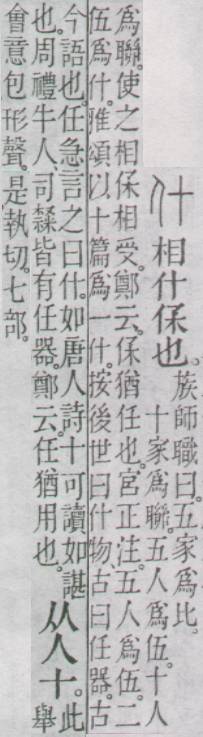 什 相什保也。
族師職曰。五家爲比。
十家爲聯。五人爲伍。十人
爲聯。使之相保相受。鄭云。保猶任也。宮正注。五人爲伍。二
伍爲什。雅頌以十篇爲一什。按後世曰什物。古曰任器。古
今語也。任急言之曰什。如唐人詩十可讀如諶
也。周禮牛人。司隸皆有任器。鄭云。任猶用也。
从人十。
此
舉
會意包形聲。是執切。七部。